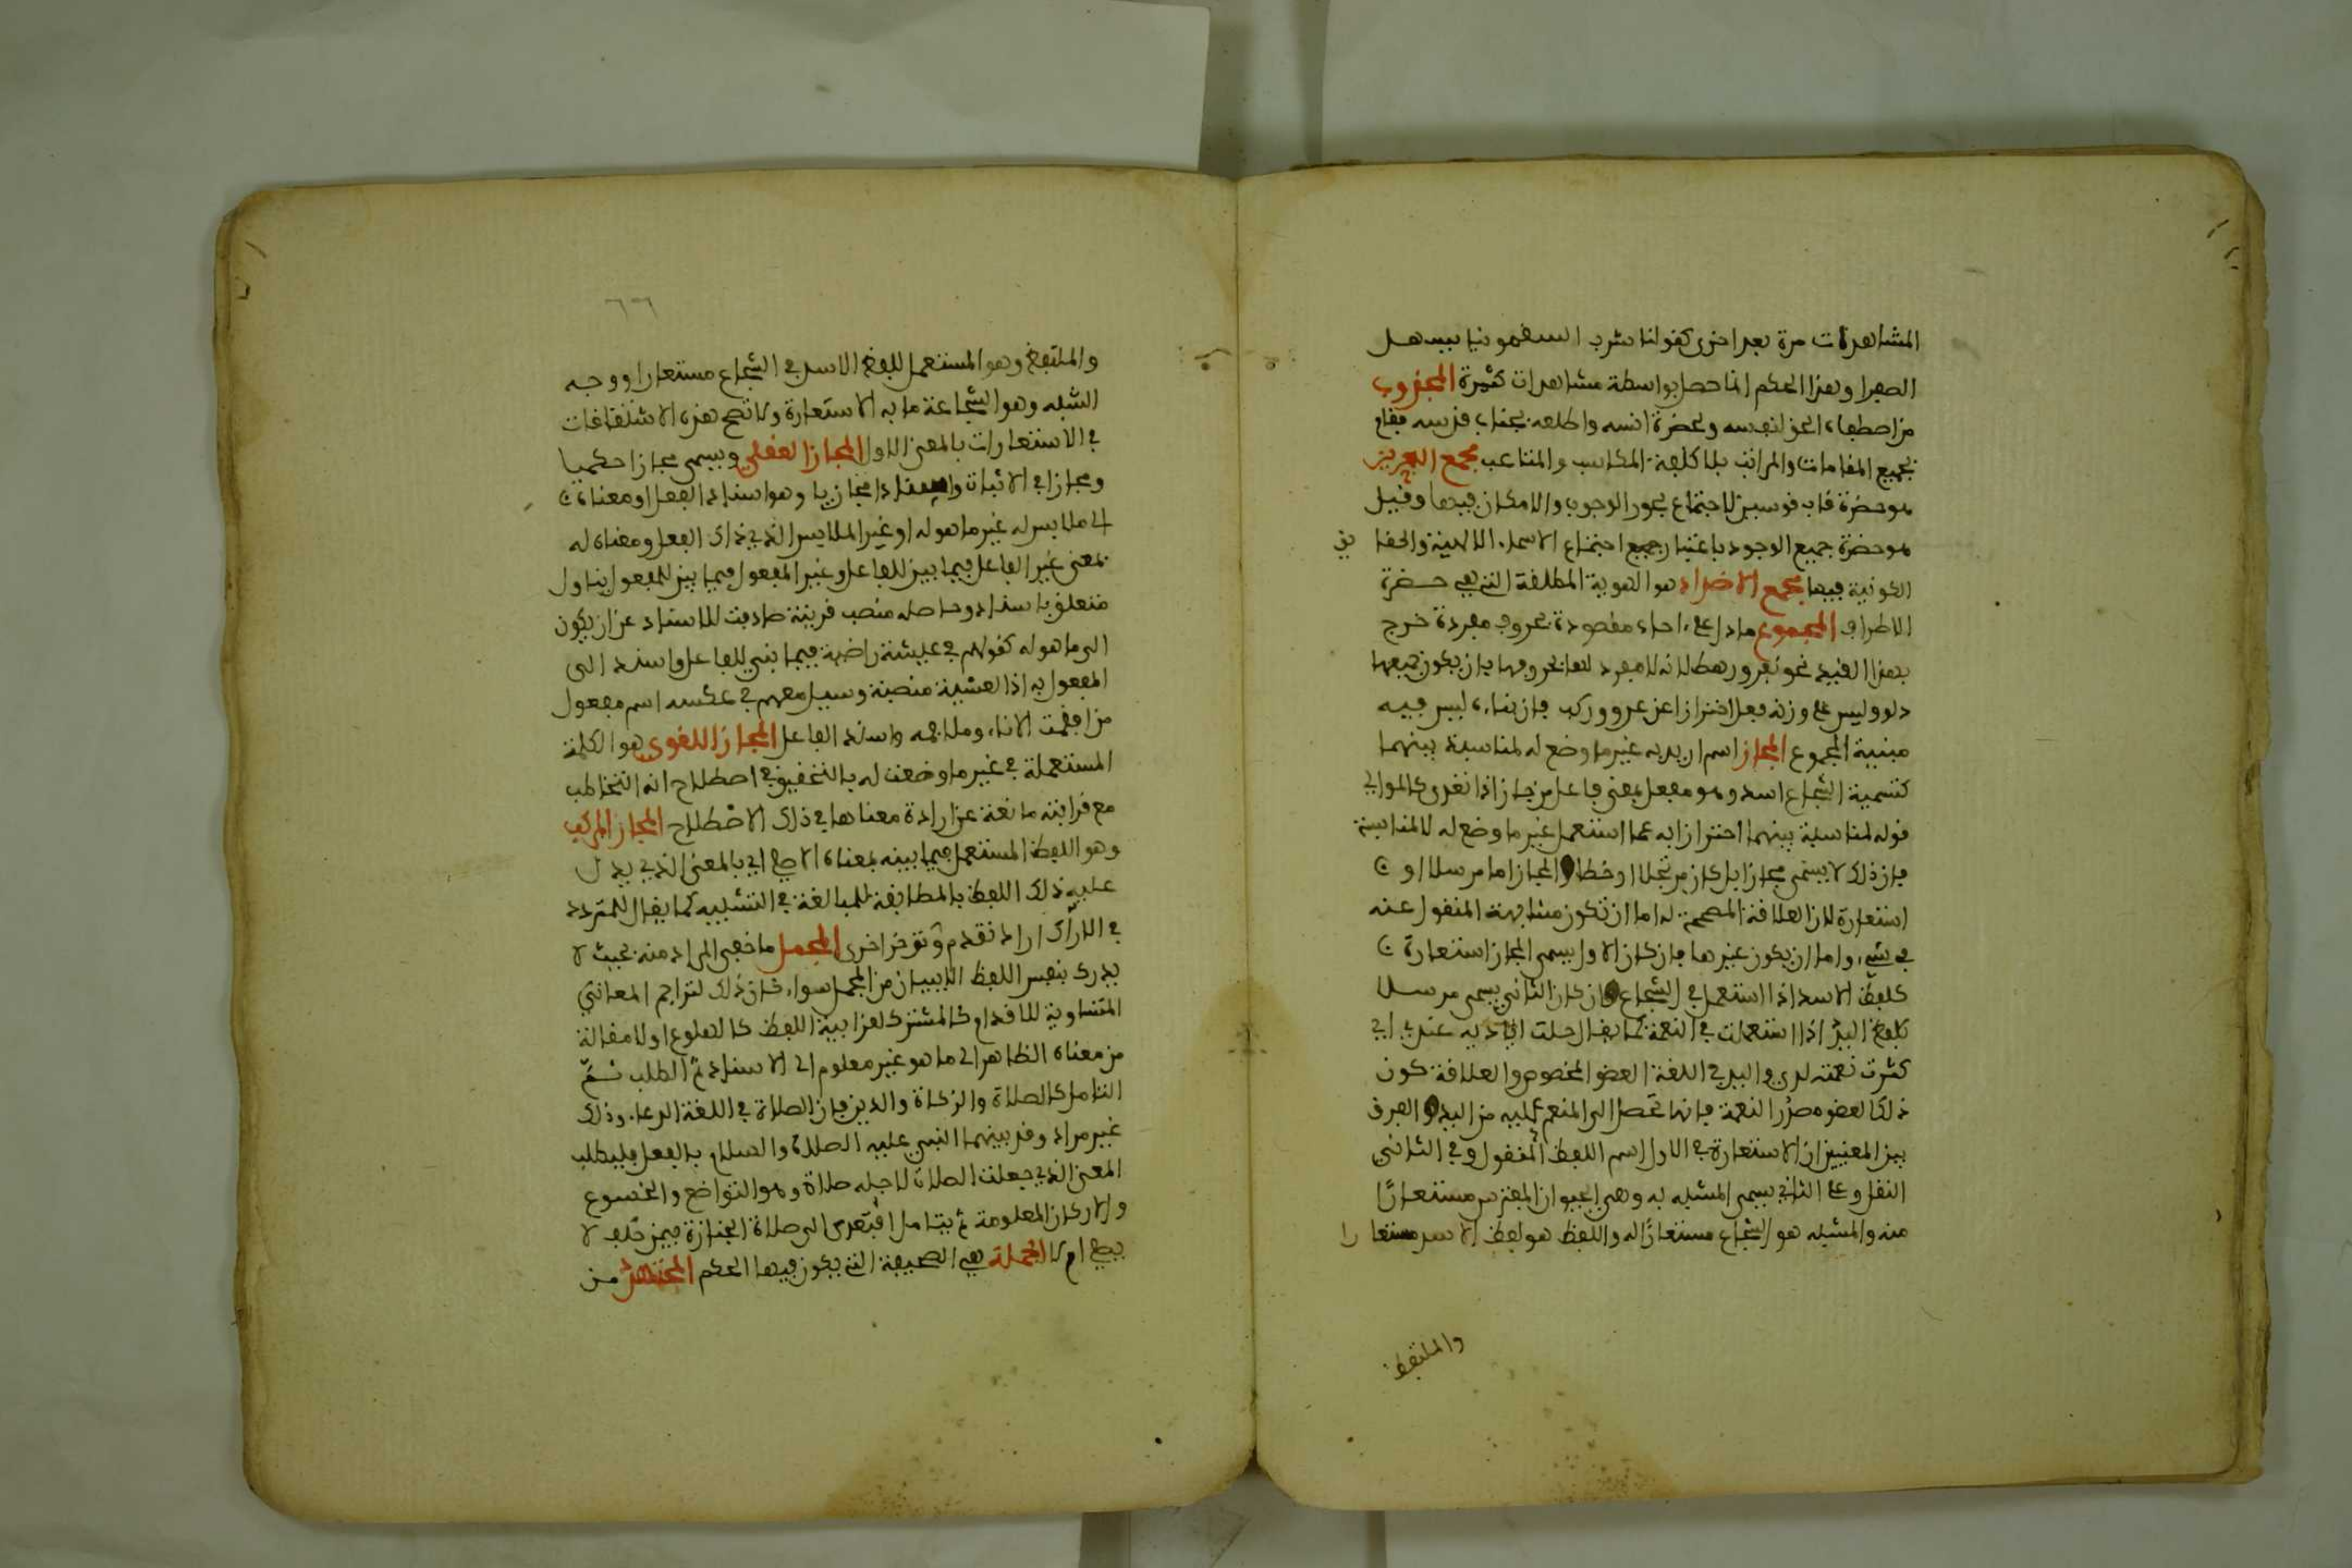 المشاهدات مرة بعد اخرى كقولنا شرب السقمونيا يسهل
الصفرا وهذا الحكم انما حصل بواسطة مشاهدات كثيرة المجذوب
من اصطفاء الحق لنفسه ولحضرة انسه واطلعه بجناب قدسه ففاز
بجميع المقامات والمراتب بلا كلفة المكاسب والمتاعب مجمع البحرين
هو حضرة قاب قوسين لاجتماع بحور الوجوب والامكان فيها وقيل
هو حضرة جميع الوجود باعتبار جميع اجتماع الاسماء الالهية والحقا يق
الكونية فيها مجمع الاضداد هو الهوية المطلقة التي هي حضرة
الاطراف المجموع ما دل على احاد مقصودة بحروف مفردة خرج
بهذا القيد نحو نفر ورهط لانه لا مفرد لها بحروفها بان يكون جميعها
دلوو ليس على وزن فعل احترازا عن عرووركب فان بناءه ليس فيه
مبنية المجموع المجاز اسم اريد به غير ما وضع له لمناسبة بينهما
كتسمية الشجاع اسد وهو مفعل بمعنى فاعل من جاز اذا تعدى كالموالي
قوله لمناسبة بينهما احترازا به عما استعمل غير ما وضع له لا لمناسبة
فان ذلك لا يسمى مجازا بل كان مرتجلا او خطا والمجاز اما مرسلا او
استعارة لان العلاقة المصححة له اما ان تكون مشابهة المنقول عنه
في شيء واما ان يكون غيرها فان كان الاول يسمى المجاز استعارة
كلفظ الاسد اذا استعمل في الشجاع وان كان الثاني يسمى مرسلا
كلفظ اليد اذا استعملت في النعمة كما يقال جلت اياديه عندي اي
كثرت نعمته لدي واليد في اللغة العضو المخصوص والعلاقة كون
ذلك العضو مصدر النعمة فانها تصل الى المنعم عليه من اليد والفرق
بين المعنيين ان الاستعارة في الاول اسم اللفظ المنقول وفي الثاني
النقل وعلى الثاني يسمى المشبه به وهي الحيوان المفترس مستعارًا
منه والمشبه هو الشجاع مستعارًا له واللفظ هو لفظ الاسد مستعا را
والملتفظ
٦٦
والملتفظ وهو المستعمل للفظ الاسد في الشجاع مستعارا ووجه
الشبه وهو الشجاعة ما به الاستعارة ولا تصح هذه الاشتقاقات
في الاستعارات بالمعنى الاول المجاز العقلي ويسمى مجازا حكميا
ومجازا في الاثبات واسنادا مجازيا وهو اسناد الفعل او معناه
الى ملابس له غير ما هو له او غير الملابس الذي ذاك الفعل ومعناه له
بمعنى غير الفاعل فيما بين للفاعل وغير المفعول فيما بين للمفعول بتاول
متعلق باسناد وحاصله منصب قرينة صادفت للاسناد عن ان يكون
الى ما هو له كقولهم في عيشة راضية فيما بنى للفاعل واسند الى
المفعول به اذا العشية منصبة وسيل مفعم في عكسه اسم مفعول
من افعمت الاناء وملاته واسند الفاعل المجاز اللغوى هو الكلمة
المستعملة في غير ما وضعت له بالتحقيق في اصطلاح انه التخاطب
مع قراينة مانعة عن ارادة معناها في ذلك الاصطلاح المجاز المركب
وهو اللفظ المستعمل فيما بينه بمعناه الاصلي اي بالمعنى الذي يدل
عليه ذلك اللفظ بالمطابقة للمبالغة في التشبيه كما يقال للمتردد
في الاراك اراد تقدم وتوخر اخرى المجمل ما خفي المراد منه بحيث لا
يدرى بنفس اللفظ الاببيان من المجمل سواء كان ذلك لتزاحم المعاني
المتساوية للاقدام كالمشترك لغرابية اللفظ كالهلوع اولا مقالة
من معناه الظاهر الى ما هو غير معلوم الى الاسناد ثم الطلب ثم
التامل كالصلاة والزكاة والدين فان الصلاة في اللغة الدعا وذلك
غير مراد وقد بينهما النبي عليه الصلاة والسلام بالفعل فليطلب
المعنى الذي جعلت الصلاة لاجله صلاة وهو التواضع والخشوع
والاركان المعلومة ثم يتامل اتتعدى الى صلاة الجنازة فيمن حلف لا
يصلي ام لا المجملة هي الصحيفة التي يكون فيها الحكم المجتهد من